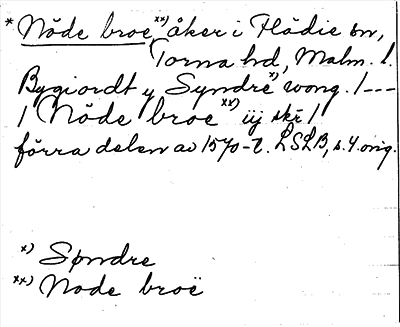 * Nöde broe xx) åker i Flädie sn,
Torna hd, Malm. l.
Bygiordt y Syndre x) wong. / ---
/ Nöde broe xx) iij skr /
förra delen av 1570-t. LSLB, s. 4. orig.
x) Søndre
xx) Node broë